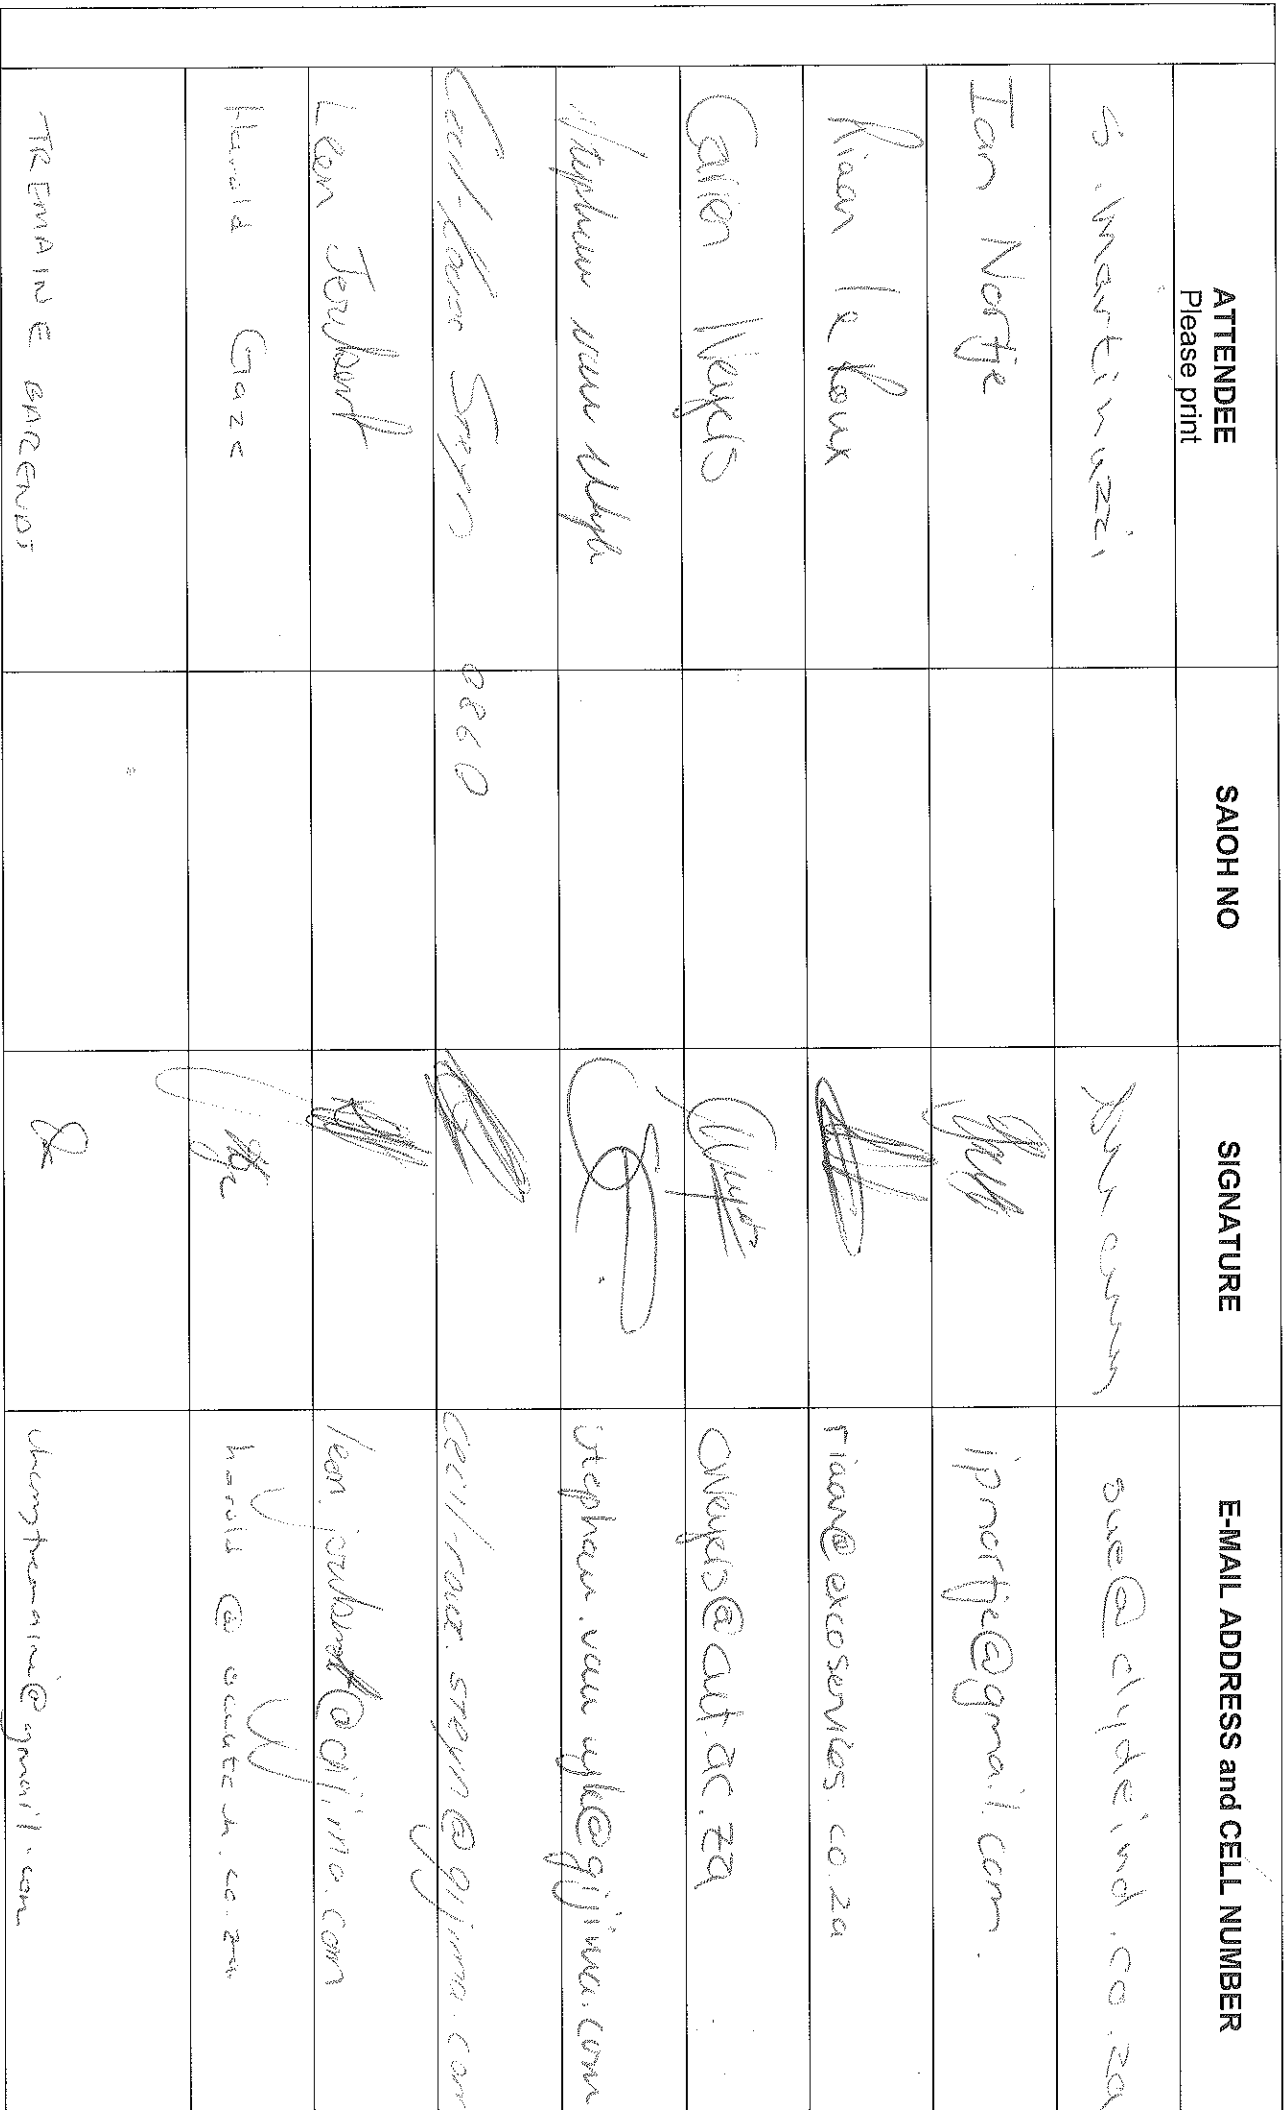 ATTENDEE SAIOH NO SIGNATURE E-MAIL ADDRESS and CELL NUMBER
Please print
S. Martinuzzi sue@clydeind.co.za
Ian Nortje ipnortje@gmail.com.
Riaan le Roux riaan@excoservices.co.za
Carien Weyers CWeyers@cut.ac.za
Stephan van Wyk stephan.van wyk@gijima.com
Steyn 0860 cecil-roux.steyn@gijima.com
Leon Joubert leon.joubert@gijima.com
Harold Gaze harold@acutech.co.za
TREMAINE BARENDS @gmail.com